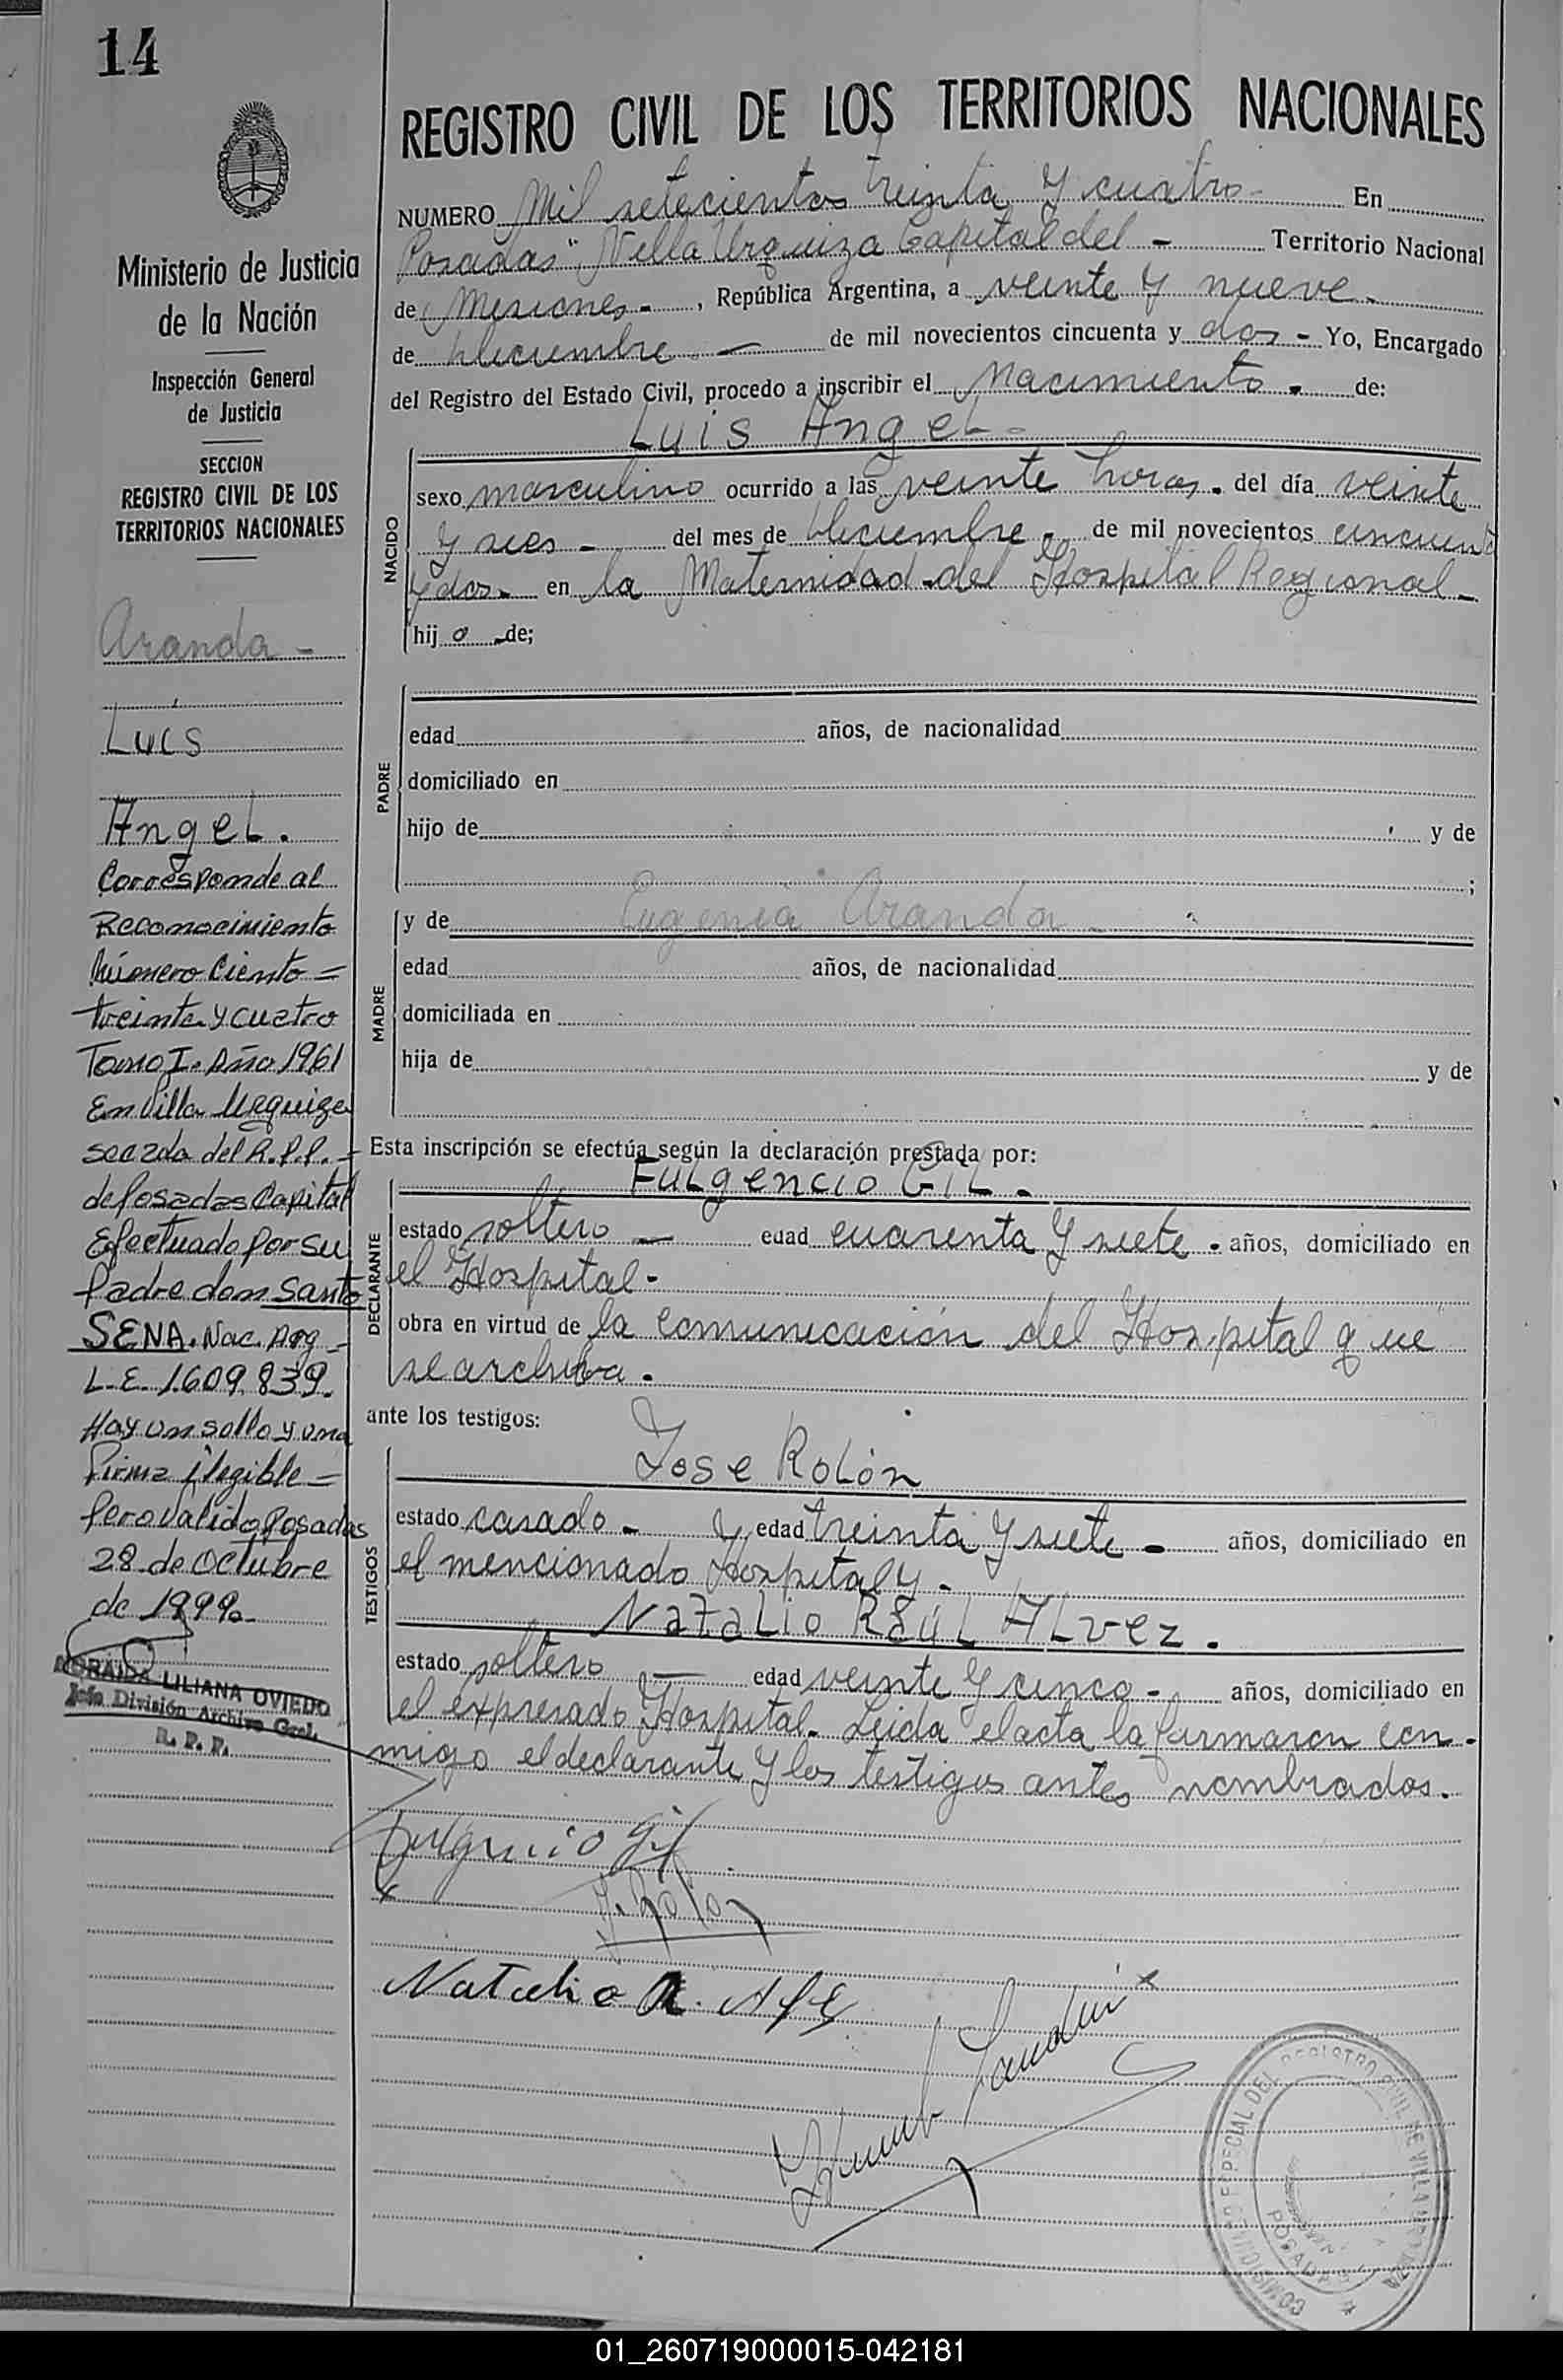 14
Ministerio de Justicia
de la Nación
Inspección General
de Justicia
SECCION
REGISTRO CIVIL DE LOS
TERRITORIOS NACIONALES
Aranda -
Luis
Angel.
Corresponde al
Reconocimiento
Número Ciento =
treinta y cuatro
Tomo I. Año 1961
En Villa Urquiza
seczda del R.P.P. -
de Posadas Capital
Efectuado por su
Padre don Santo
SENA. Nac. Arg -
L.E. 1.609.839.
Hay un sello y una
firma ilegible =
Pero válido Posadas
28 de Octubre
de 1999.-
LILIANA OVIEDO
Jefe División Archivo Gral.
R. P. P.
REGISTRO CIVIL DE LOS TERRITORIOS NACIONALES
NUMERO Mil setecientos treinta y cuatro - En
Posadas "Villa Urquiza Capital del - Territorio Nacional
de Misiones - , República Argentina, a veinte y nueve -
de Diciembre - de mil novecientos cincuenta y dos - Yo, Encargado
del Registro del Estado Civil, procedo a inscribir el Nacimiento - de:
Luis Angel -
NACIDO
sexo masculino ocurrido a las veinte horas. del día veinte
y seis - del mes de Diciembre - de mil novecientos cincuenta
y dos - en la Maternidad del Hospital Regional -
hij o de;
PADRE
edad años, de nacionalidad
domiciliado en
hijo de y de
;
MADRE
y de Eugenia Aranda -
edad años, de nacionalidad
domiciliada en
hija de y de
Esta inscripción se efectúa según la declaración prestada por:
Fulgencio Gil -
DECLARANTE
estado soltero - edad cuarenta y siete - años, domiciliado en
el Hospital -
obra en virtud de la comunicación del Hospital que
se archiva -
ante los testigos:
Jose Rolón
TESTIGOS
estado casado - y edad treinta y siete - años, domiciliado en
el mencionado Hospital y -
Natalio Raúl Alvez.
estado soltero - edad veinte y cinco - años, domiciliado en
el expresado Hospital. Leida el acta la firmaron con-
migo el declarante y los testigos antes nombrados.
Fulgencio Gil
J. Rolon
Natalio R.
COMISION AD ESPECIAL DEL REGISTRO CIVIL DE VILLA URQUIZA
POSADAS
01_260719000015-042181